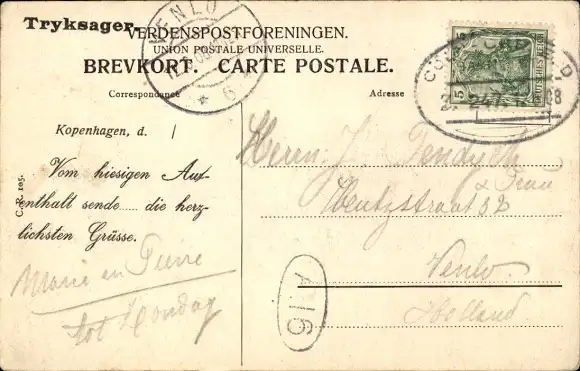 Tryksager.
VERDENSPOSTFORENINGEN.
UNION POSTALE UNIVERSELLE.
BREVKORT. CARTE POSTALE.
Correspondance
Adresse
VENLO
6
5
DEUTSCHES REICH
Kopenhagen, d.
Vom hiesigen Auf-
enthalt sende..... die herz-
lichsten Grüsse.
C. R. 105.
Marie en Pierre
tot Hondag
Herrn J. Fendych
& Frau
32
Venlo.
Holland
A.16